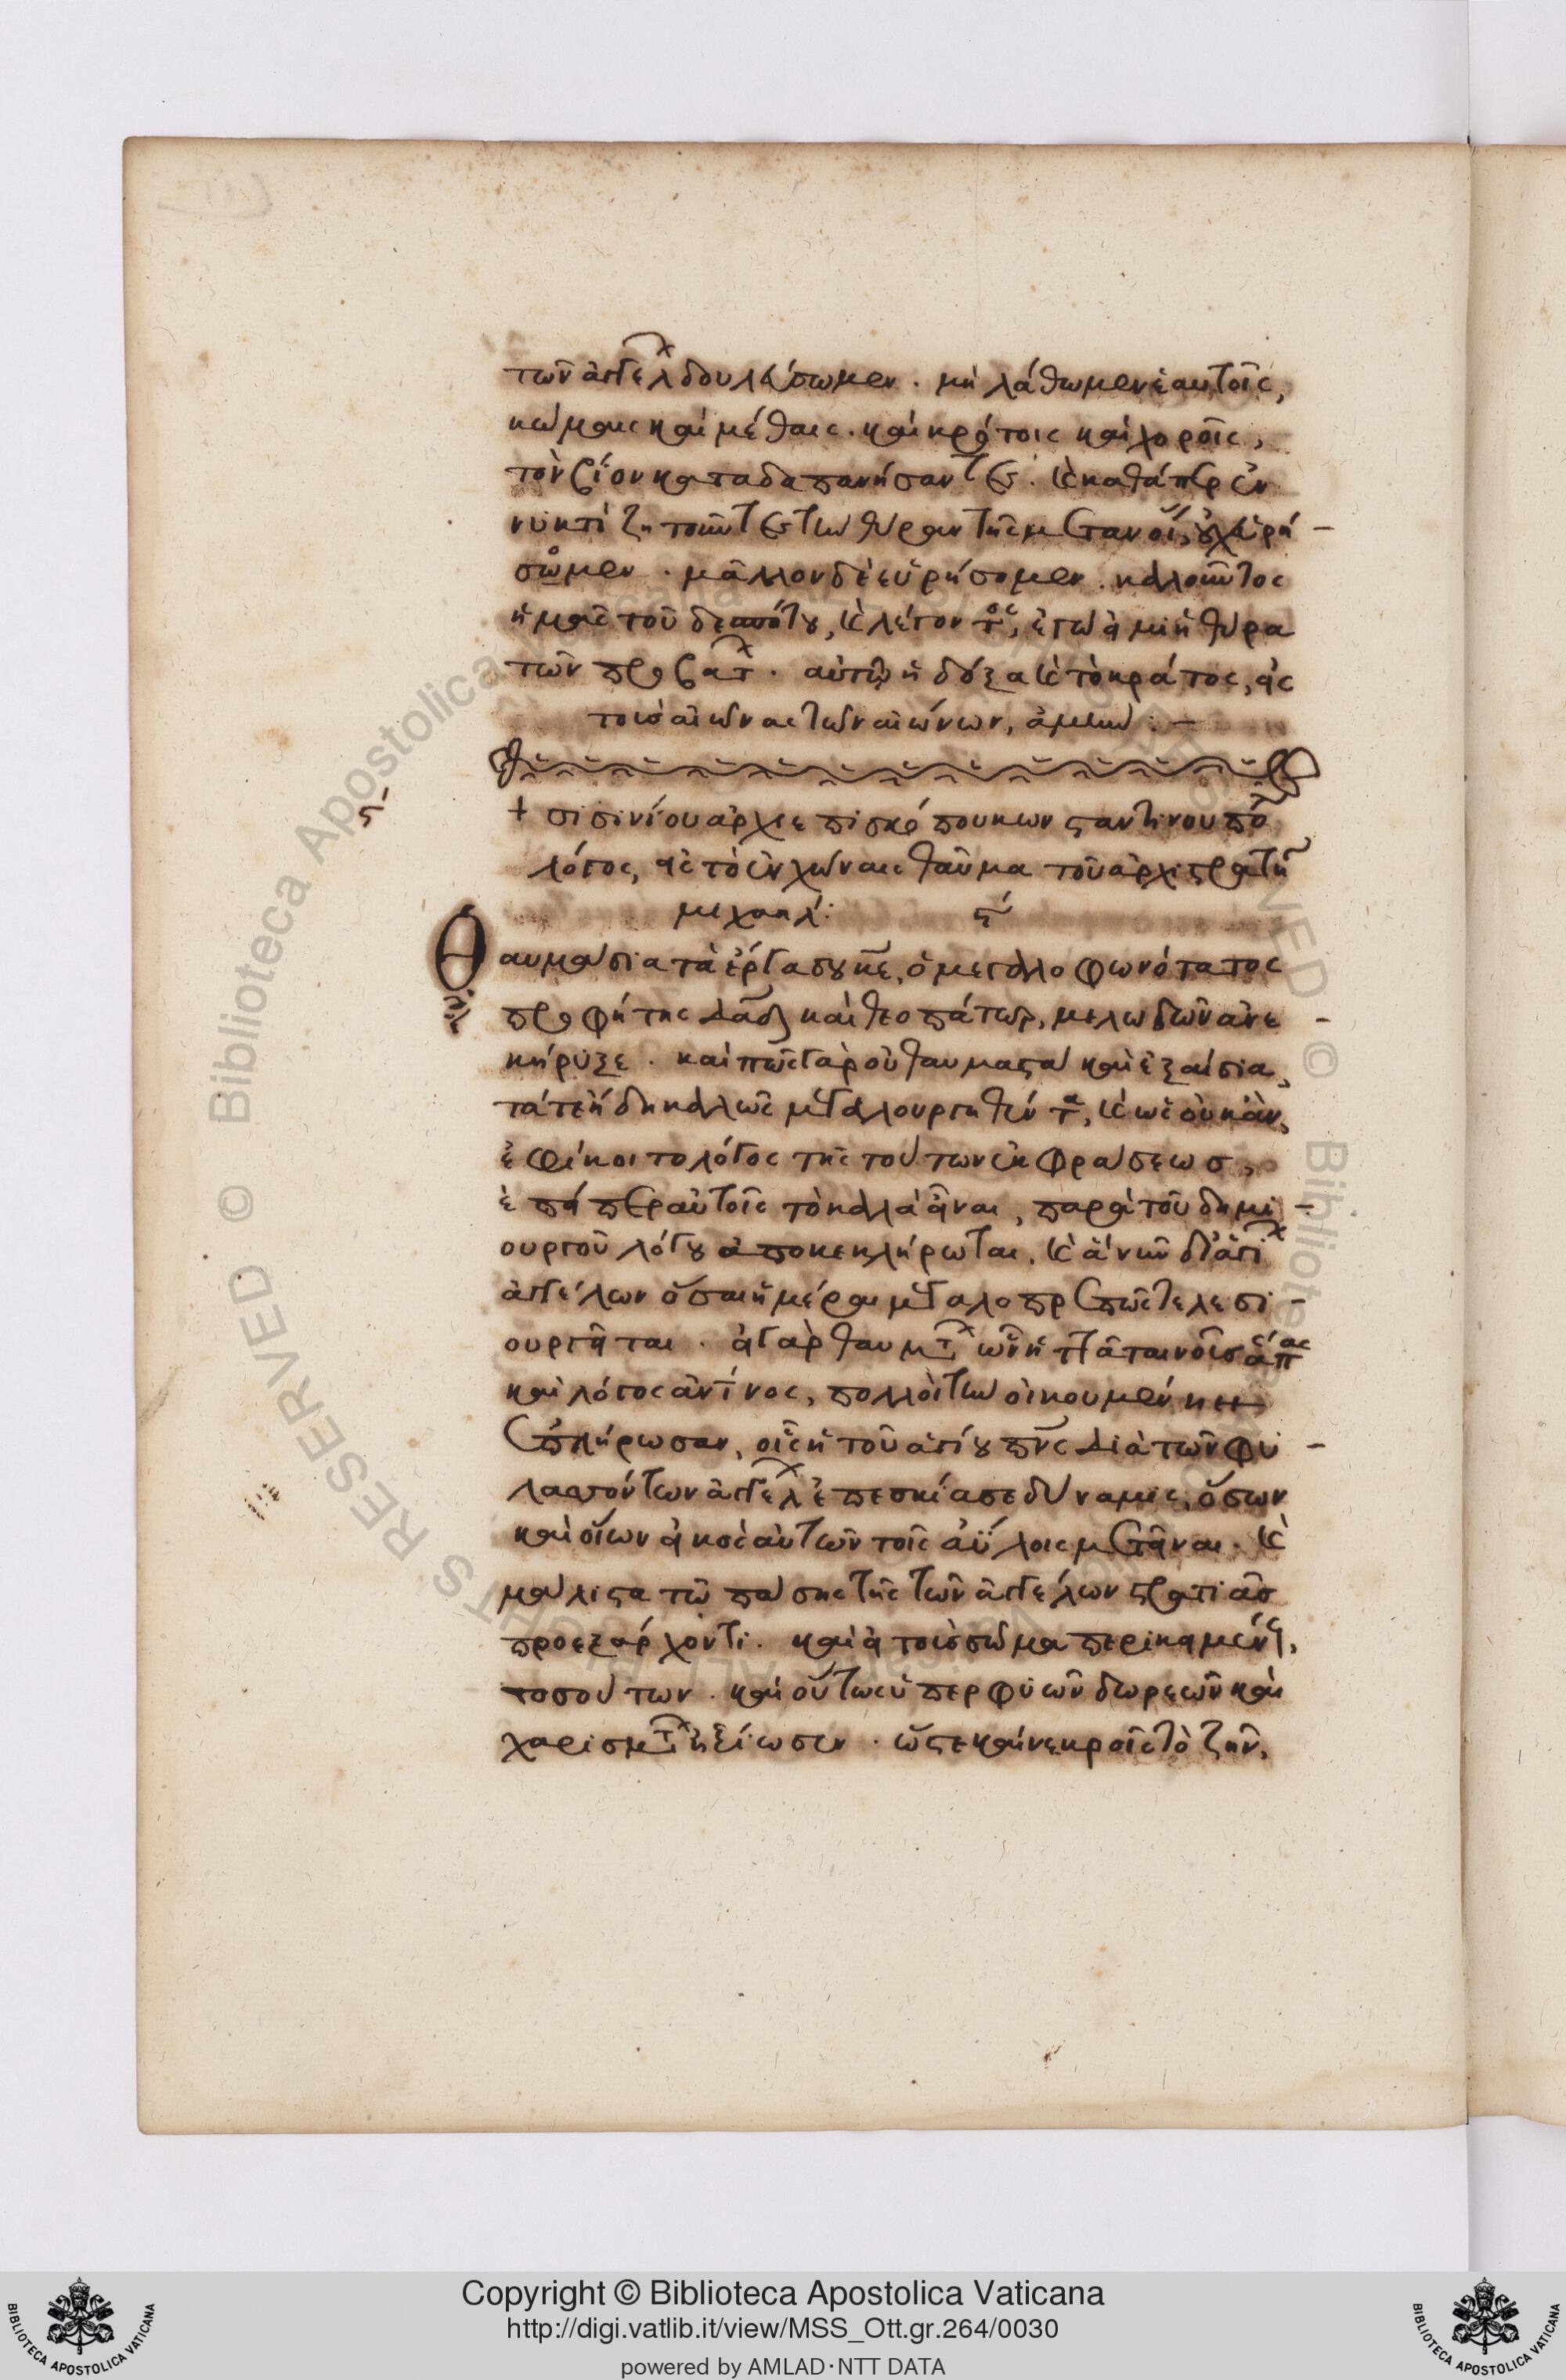 τῶν ἀγγέλ δουλεύσωμεν . μὴ λάθωμεν ἑαυτοῖς,
κώμαις καὶ μέθαις . καὶ κρότοις καὶ χοροῖς,
τὸν βίον καταδαπανήσαντες . καὶ καθάπερ ἐν
νυκτὶ ζητοῦντες τὴν θύραν τῆς μετανοί, οὐχ εὑρή-
σωμεν . μᾶλλον δὲ εὑρήσομεν . καλοῦντος
ἡμᾶς τοῦ δεσπότου, καὶ λέγοντος, ἐγώ εἰμι ἡ θύρα
τῶν προβάτ . αὐτῷ ἡ δόξα καὶ τὸ κράτος, εἰς
τοὺς αἰῶνας τῶν αἰώνων, ἀμήν : –
+ σισινίου ἀρχιεπισκόπου κωνσταντινουπό
λόγος, εἰς τὸ ἐν χώναις θαῦμα τοῦ ἀρχιστρατή
μιχαήλ : ς
Θαυμάσια τὰ ἔργα σου κε, ὁ μεγαλοφωνότατος
προφήτης δαδ καὶ θεοπάτωρ, μελωδῶν ἀνε-
κήρυξε . καὶ πῶς γὰρ οὐ θαυμαστὰ καὶ ἐξαίσια,
τά τε ἤδη καλῶς μεγαλουργηθέντα, καὶ ὡς οὐκ ἂν
ἐφίκοιτο λόγος τῆς τούτων ἐκφράσεως,
ἐπείπερ αὐτοῖς τὸ καλὰ εἶναι, παρὰ τοῦ δημι-
ουργοῦ λόγου ἀποκεκλήρωται . καὶ ἃ νῦν δι' ἁγί
ἀγγέλων ὅσαι ἡμέραι μεγαλοπρεπῶς τελεσι-
ουργεῖται .
καὶ λόγος ἅντινος, πολλοὶ τὴν οἰκουμένην
ἐπλήρωσαν, οἷς ἡ τοῦ ἁγίου πνς διὰ τῶν φυ-
λαττόντων ἀγγέλ ἐπεσκίασε δύναμις, ὅσων
καὶ οἵων εἰκὸς αὐτῶν τοῖς ἀΰλοις μετεῖναι . καὶ
μάλιστα τῷ πάσης τῆς τῶν ἀγγέλων στρατιᾶς
προεξάρχοντι . καὶ εἰ τοὺς σῶμα περικειμένους,
τοσούτων . καὶ οὕτως ὑπερφυῶν δωρεῶν καὶ
χαρισμάτ ἠξίωσεν . ὥστε καὶ νεκροῖς τὸ ζῆν,
Copyright © Biblioteca Apostolica Vaticana
http://digi.vatlib.it/view/MSS_Ott.gr.264/0030
powered by AMLAD·NTT DATA